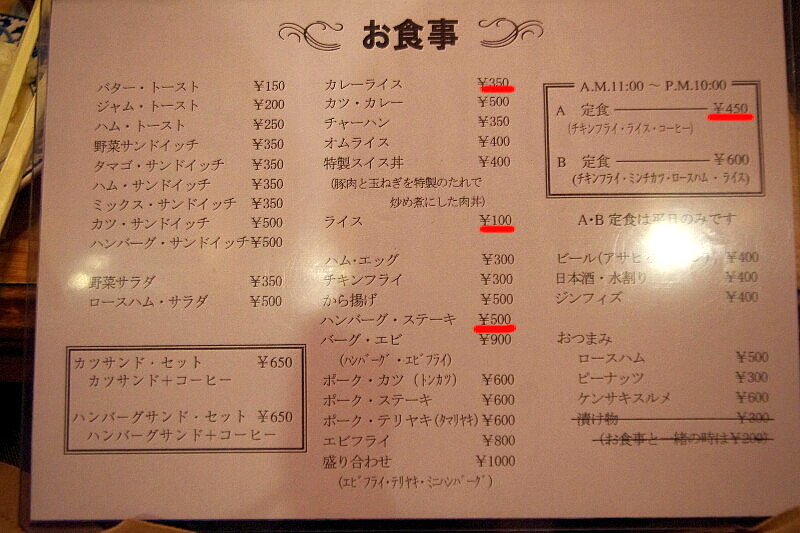 お食事
バター・トースト ¥150
ジャム・トースト ¥200
ハム・トースト ¥250
野菜サンドイッチ ¥350
タマゴ・サンドイッチ ¥350
ハム・サンドイッチ ¥350
ミックス・サンドイッチ ¥350
カツ・サンドイッチ ¥500
ハンバーグ・サンドイッチ ¥500
野菜サラダ ¥350
ロースハム・サラダ ¥500
カツサンド・セット ¥650
カツサンド＋コーヒー
ハンバーグサンド・セット ¥650
ハンバーグサンド＋コーヒー
カレーライス ¥350
カツ・カレー ¥500
チャーハン ¥350
オムライス ¥400
特製スイス丼 ¥400
(豚肉と玉ねぎを特製のたれで
炒め煮にした肉丼)
ライス ¥100
ハム・エッグ ¥300
チキンフライ ¥300
から揚げ ¥500
ハンバーグ・ステーキ ¥500
バーグ・エビ ¥900
(ﾊﾝﾊﾞｰｸﾞ・ｴﾋﾞﾌﾗｲ)
ポーク・カツ (ﾄﾝｶﾂ) ¥600
ポーク・ステーキ ¥600
ポーク・テリヤキ(ﾀﾏﾘﾔｷ) ¥600
エビフライ ¥800
盛り合わせ ¥1000
(ｴﾋﾞﾌﾗｲ・ﾃﾘﾔｷ・ﾐﾆﾊﾝﾊﾞｰｸﾞ)
A.M.11:00 ～ P.M.10:00
A 定食 ¥450
(ﾁｷﾝﾌﾗｲ・ﾗｲｽ・ｺｰﾋｰ)
B 定食 ¥600
(ﾁｷﾝﾌﾗｲ・ﾐﾝﾁｶﾂ・ﾛｰｽﾊﾑ・ﾗｲｽ)
A・B 定食は平日のみです
ビール(アサヒ ) ¥400
日本酒・水割り ¥400
ジンフィズ ¥400
おつまみ
ロースハム ¥500
ピーナッツ ¥300
ケンサキスルメ ¥600
漬け物 ¥300
(お食事と一緒の時は¥200)